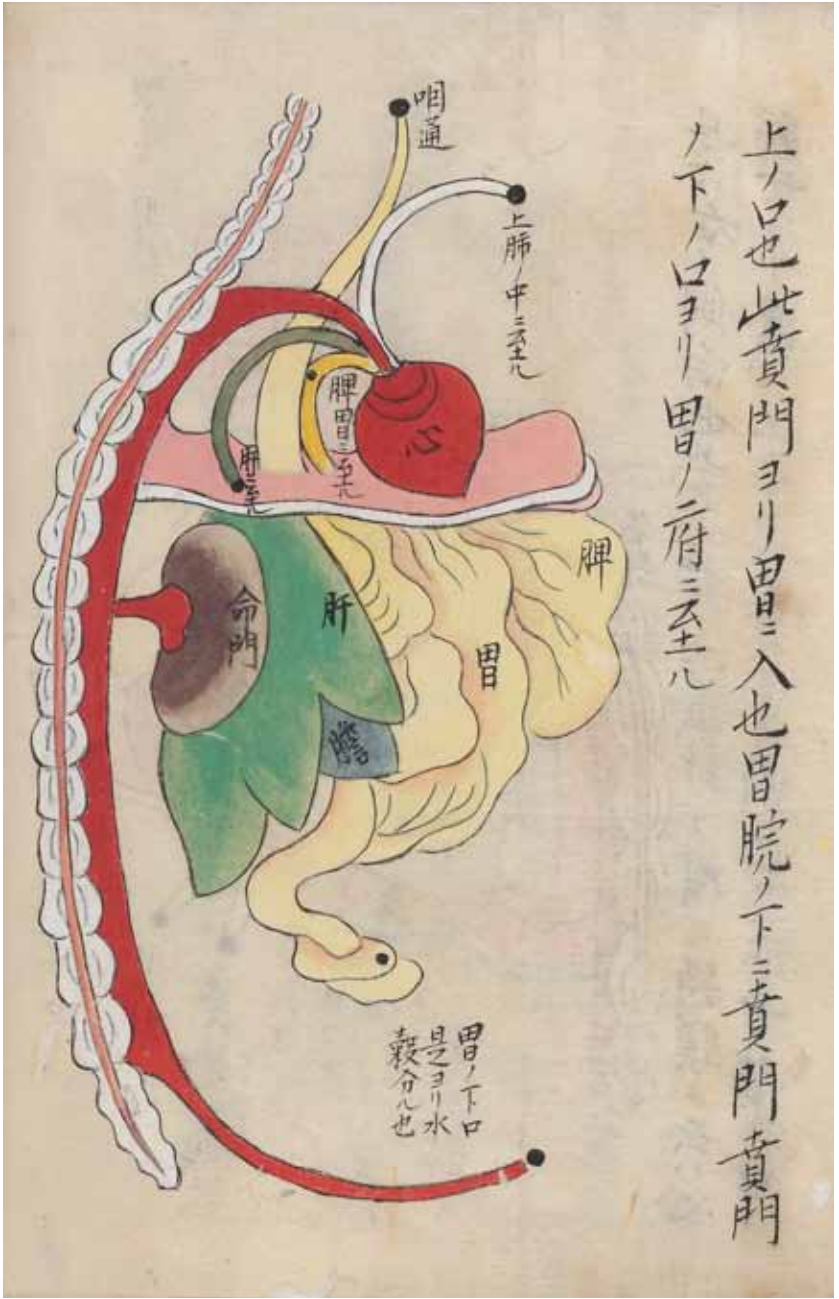 上ノ口也此賁門ヨリ胃ニ入也胃脘ノ下ニ賁門賁門
ノ下ノ口ヨリ胃ノ二府ニ至ル
咽通
上肺ノ中ニ至ル
心
脾胃ニ至ル
肝ニ至ル
脾
胃
肝
命門
膽
胃ノ下口
是ヨリ水
穀分ル也